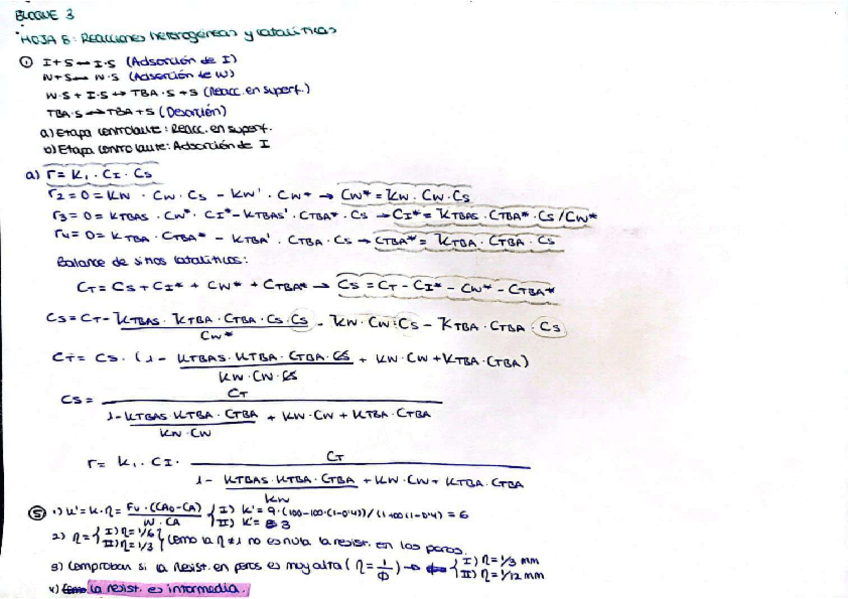 BLOQUE 3
HOJA 6: Reacciones heterogéneas y catalíticas
① I+S ↔ I·S (Adsorción de I)
W+S ↔ W·S (Adsorción de W)
W·S + I·S ↔ TBA·S + S (Reacc. en superf.)
TBA·S ↔ TBA + S (Desorción)
a) Etapa controlante: Reacc. en superf.
b) Etapa controlante: Adsorción de I
a) r = K₁ · CI · Cs
r2 = 0 = KW · CW · Cs - KW' · CW* → CW* = KW · CW · Cs
r3 = 0 = KTBAS · CW* · CI* - KTBAS' · CTBA* · Cs → CI* = KTBAS · CTBA* · Cs / CW*
r4 = 0 = KTBA · CTBA* - KTBA' · CTBA · Cs → CTBA* = KTBA · CTBA · Cs
Balance de sitios catalíticos:
CT = Cs + CI* + CW* + CTBA* → Cs = CT - CI* - CW* - CTBA*
Cs = CT - KTBAS · KTBA · CTBA · Cs · Cs / CW* - KW · CW · Cs - KTBA · CTBA · Cs
CT = Cs · (1 - KTBAS · KTBA · CTBA · Cs / KW · CW · Cs + KW · CW + KTBA · CTBA)
Cs = CT / 1 - KTBAS · KTBA · CTBA / KW · CW + KW · CW + KTBA · CTBA
r = K₁ · CI · CT / 1 - KTBAS · KTBA · CTBA / KW + KW · CW + KTBA · CTBA
⑤ 1) K' = K · η = Fv · (CA0 - CA) / W · CA { I) K' = 9 · (100 - 100 · (1 - 0'4)) / (1 · 100 (1 - 0'4) = 6
II) K' = 3
2) η = { I) η = 1/6 II) η = 1/3 } Como la η ≠ 1 no es nula la resist. en los poros.
3) Comprobar si la resist. en poros es muy alta (η = 1/Φ) → { I) η = 1/3 mm
II) η = 1/12 mm
La resist. es intermedia.